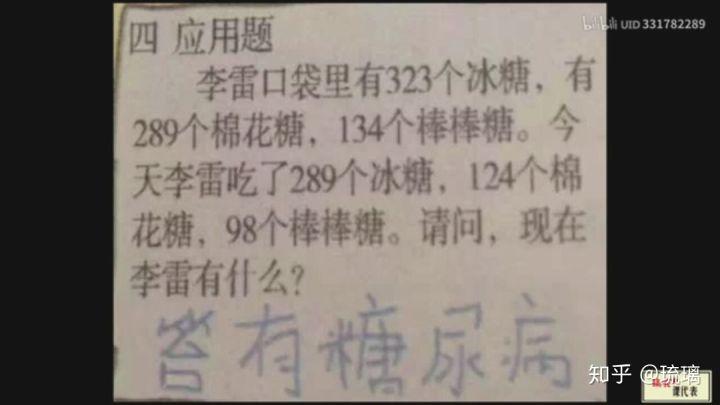 bilibili UID 331782289
四 应用题
李雷口袋里有323个冰糖，有
289个棉花糖，134个棒棒糖。今
天李雷吃了289个冰糖，124个棉
花糖，98个棒棒糖。请问，现在
李雷有什么？
答有糖尿病
知乎 @琉璃
课代表